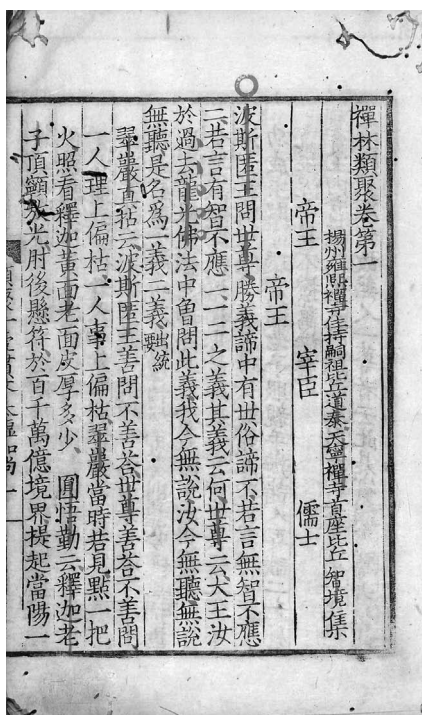 禪林類聚卷第一
揚州雍熙禪寺住持嗣祖比丘道泰天寧禪寺首座比丘智境集
帝王 宰臣 儒士
帝王
波斯匿王問世尊勝義諦中有世俗諦不若言無智不應
二若言有智不應一一二之義其義云何世尊云大王汝
於過去龍光佛法中曾問此義我今無說汝今無聽無說
無聽是名為一義二義出統要
翠巖真拈云波斯匿王善問不善荅世尊善荅不善問
一人理上偏枯一人事上偏枯翠巖當時若見點一把
火照看釋迦黃面老面皮厚多少 圓悟勤云釋迦老
子頂𩕳放光肘後懸符於百千萬億境界提起當陽一